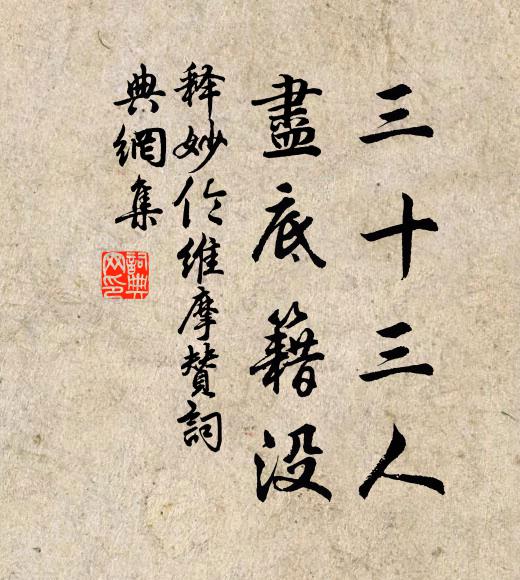 三十三人
盡底籍没
释妙伦維摩贊詞
典網集
詞典
网印